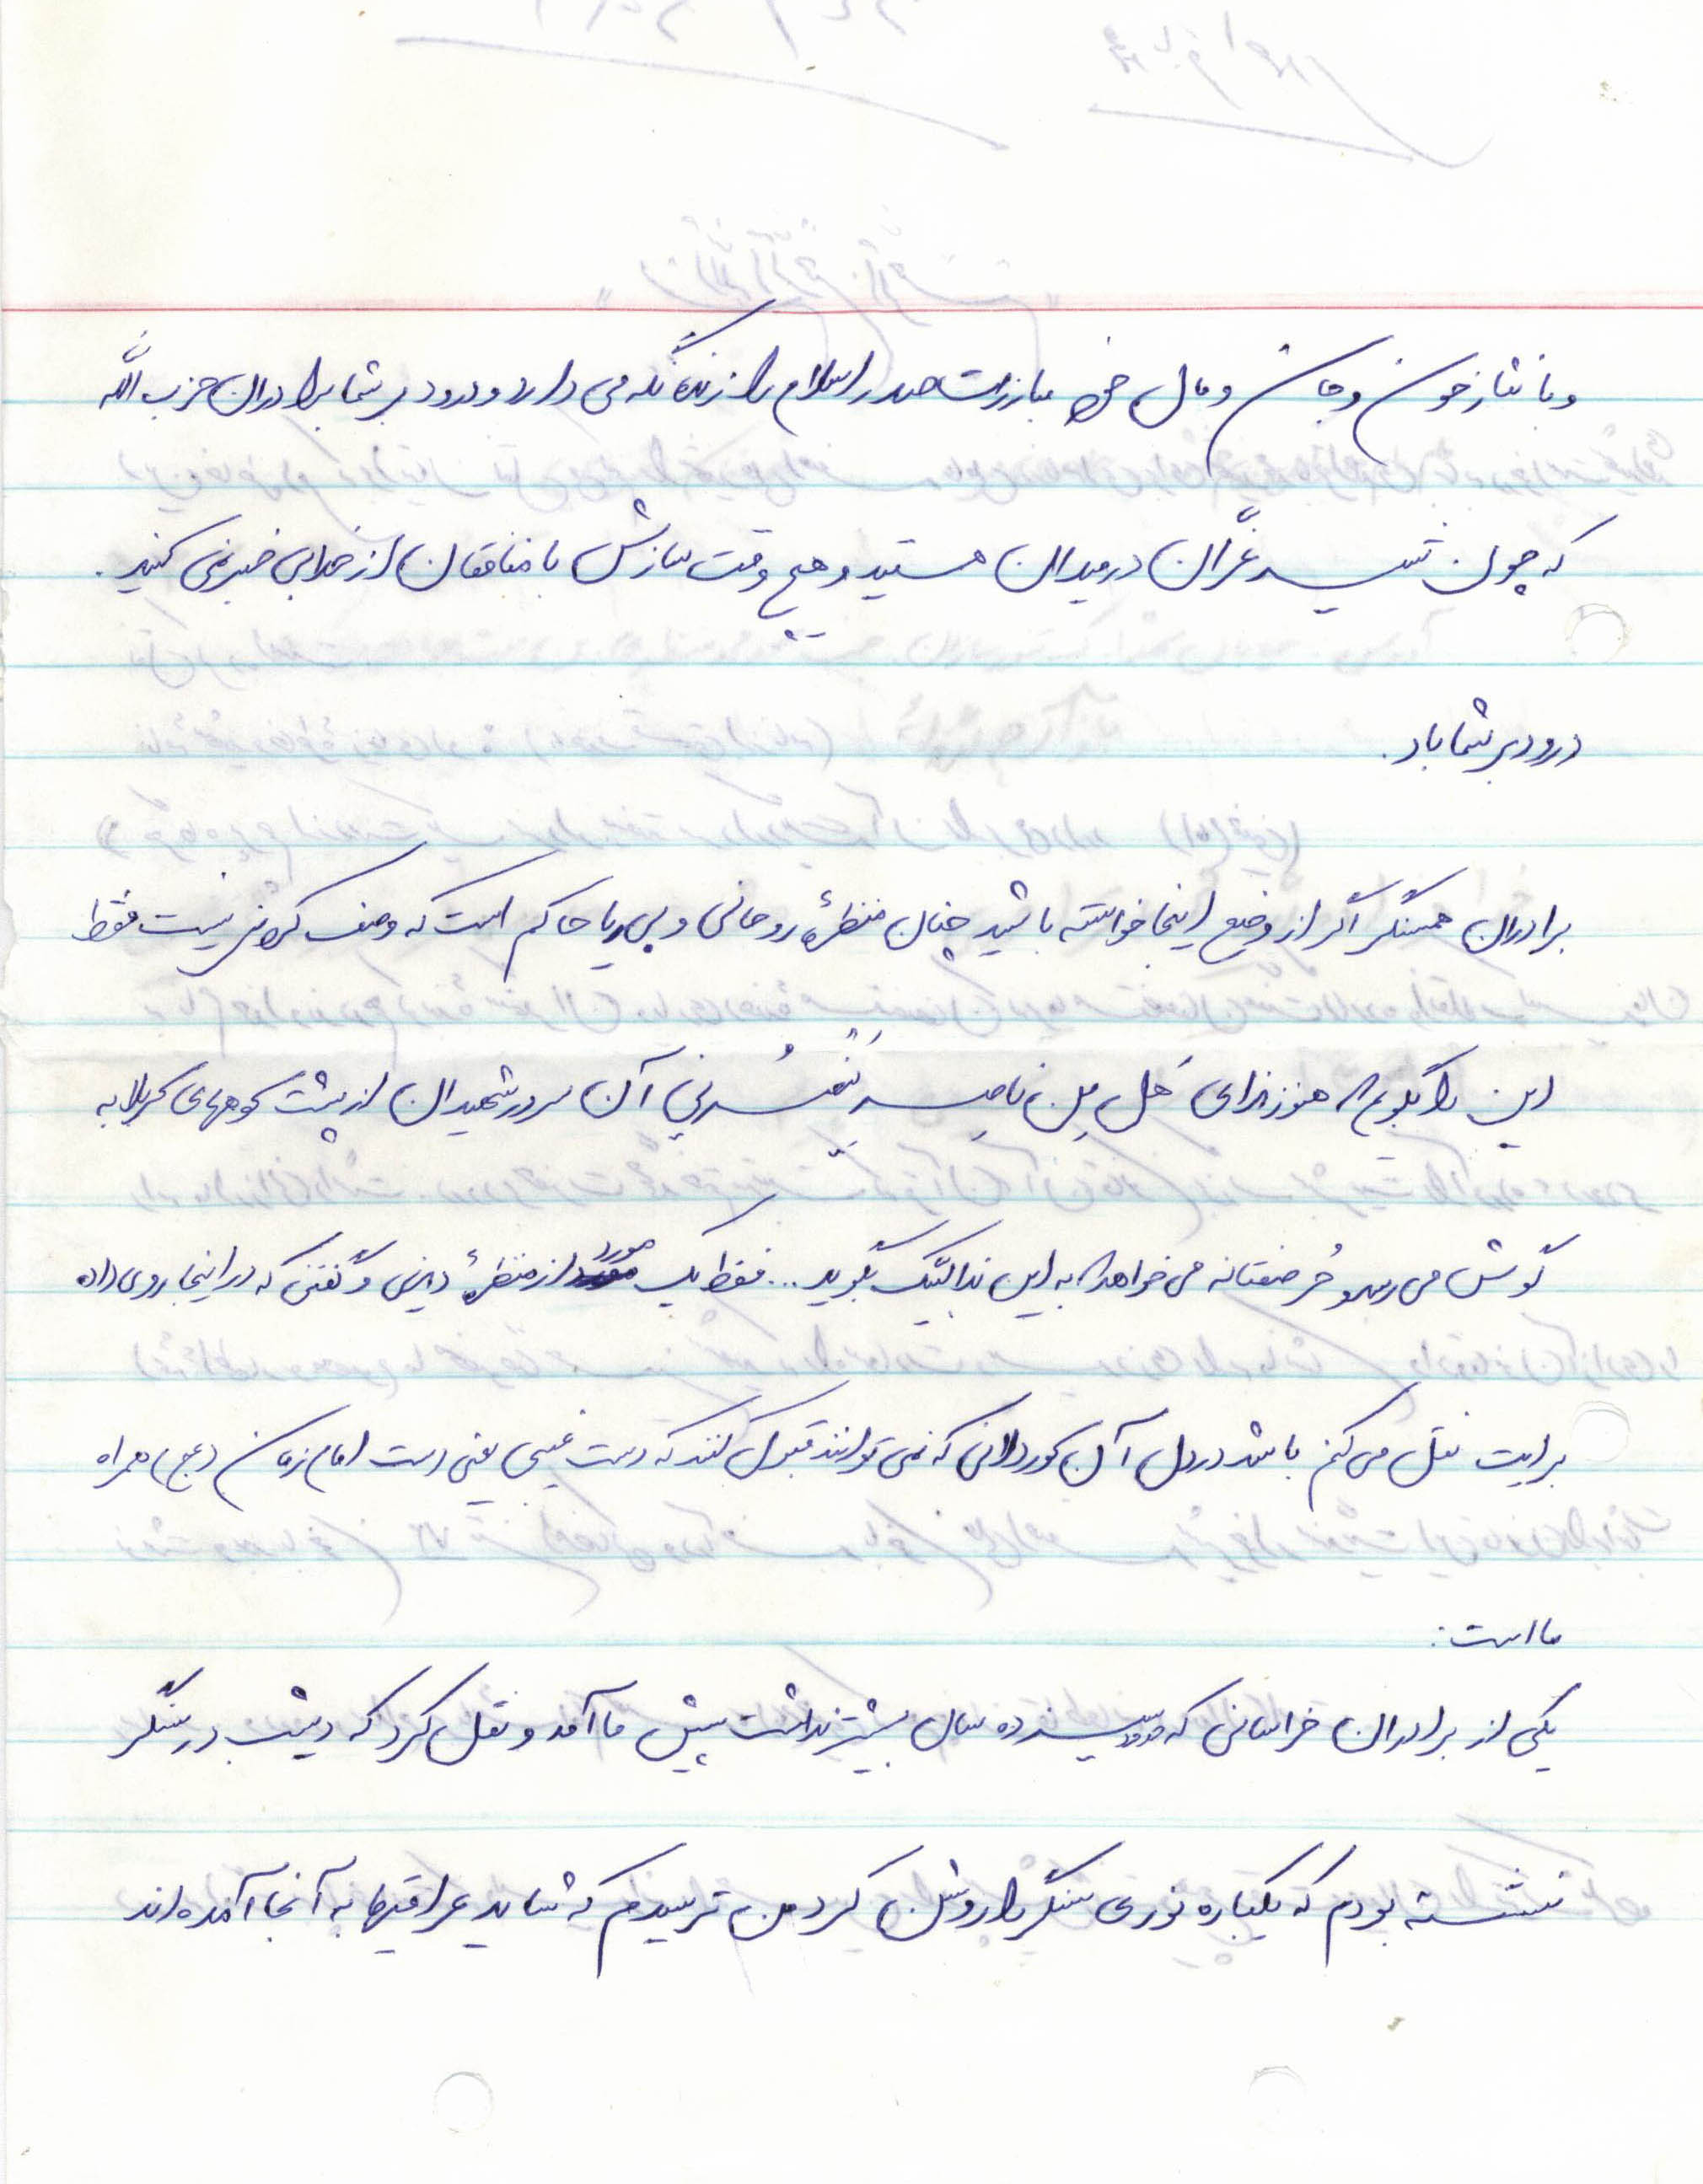 و با نثار خون و جان و مال خود مبارزات صدر اسلام را زنده نگه می دارد و درود بر شما برادران حزب الله
که چون شیر غرّان در میدان هستید و هیچ وقت سازش با منافقان از خدا بی خبر نمی کنید.
درود بر شما باد.
برادران همسنگر اگر از وضع اینجا خواسته باشید چنان منظرهٔ روحانی و بی ریا حاکم است که وصف کردنی نیست فقط
این را بگویم که هنوز ندای هَل مِن ناصِرٍ یَنصُرنی آن سرور شهیدان از پشت کوههای کربلا به
گوش می رسد و حُر صفتانه می خواهد که به این ندا لبّیک بگوید ... فقط یک مورد از منظرهٔ دیدنی و گفتنی که در اینجا روی داده
برایت نقل می کنم باشد در دل آن کوردلانی که نمی توانند قبول کنند که دست غیبی یعنی دست امام زمان (عج) همراه
ما است:
یکی از برادران خراسانی که سیزده سال بیشتر نداشت پیش ما آمد و نقل کرد که دیشب در سنگر
نشسته بودم که یکباره نوری سنگر را روشن کرد من ترسیدم که شاید عراقیها به آنجا آمده اند